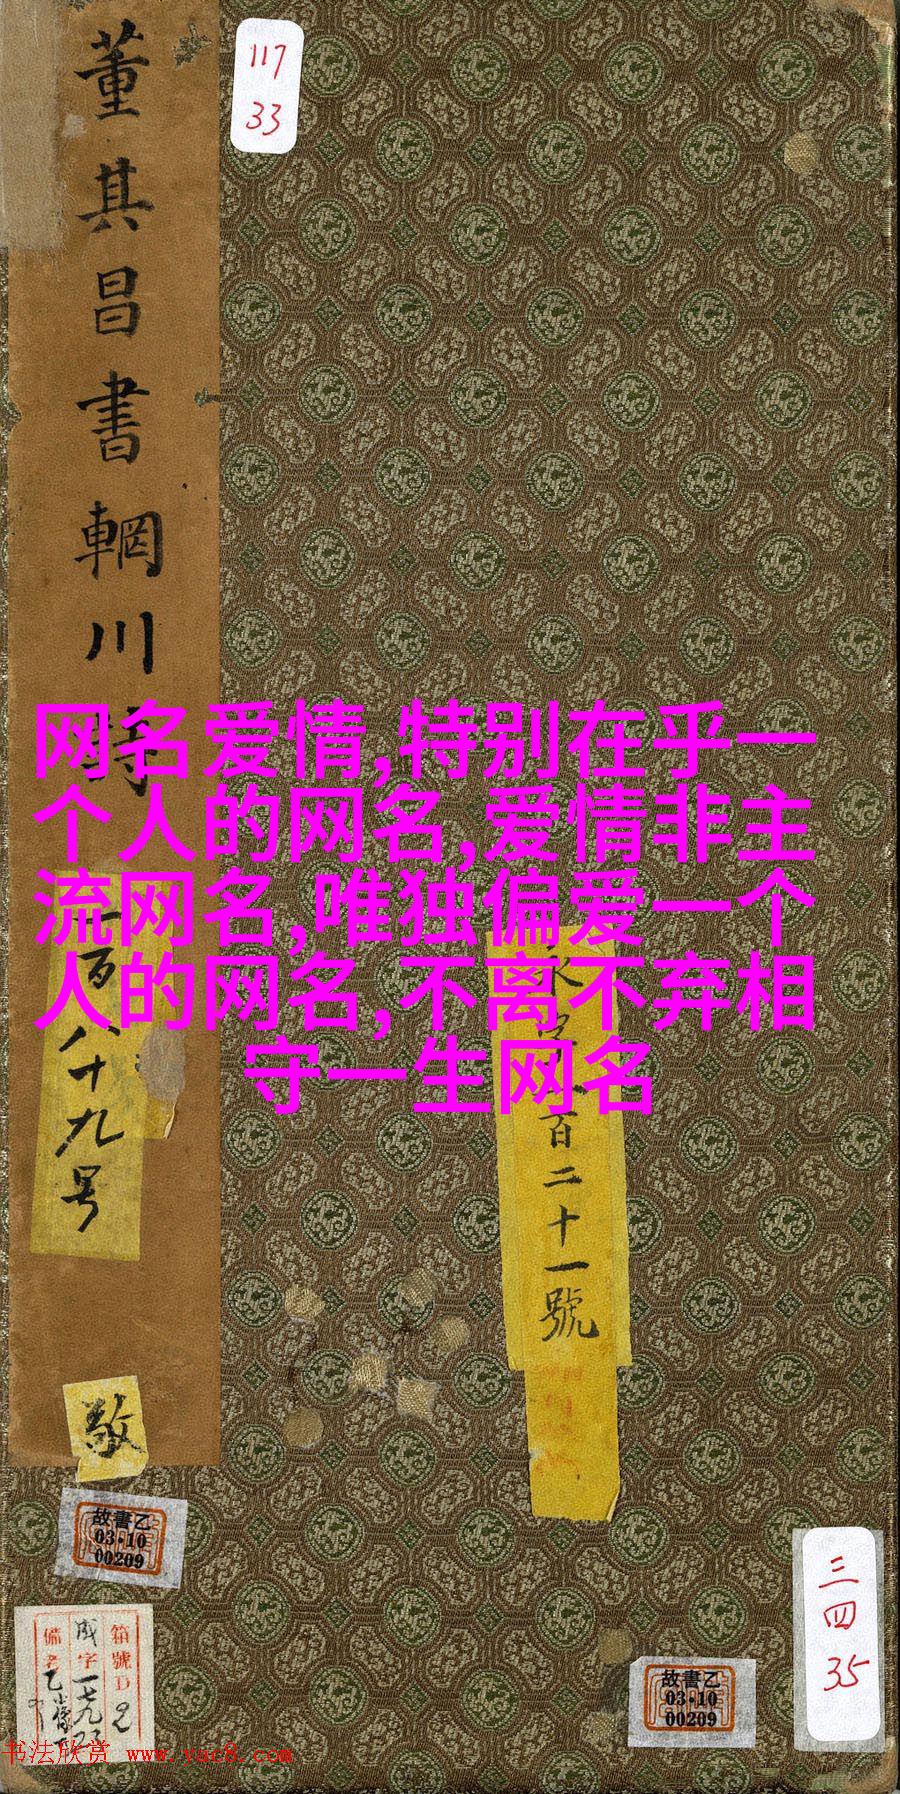 董其昌書輞川詩
117
33
网名爱情,特别在乎一
个人的网名,爱情非主
流网名,唯独偏爱一个
人的网名,不离不弃相
守一生网名
一百八十九号
百二十一號
敬
故書乙
03·10
00209
箱號D
2
成字一七九
備考
故書乙
03·10
00209
三四
35
书法欣赏 www.yac8.com